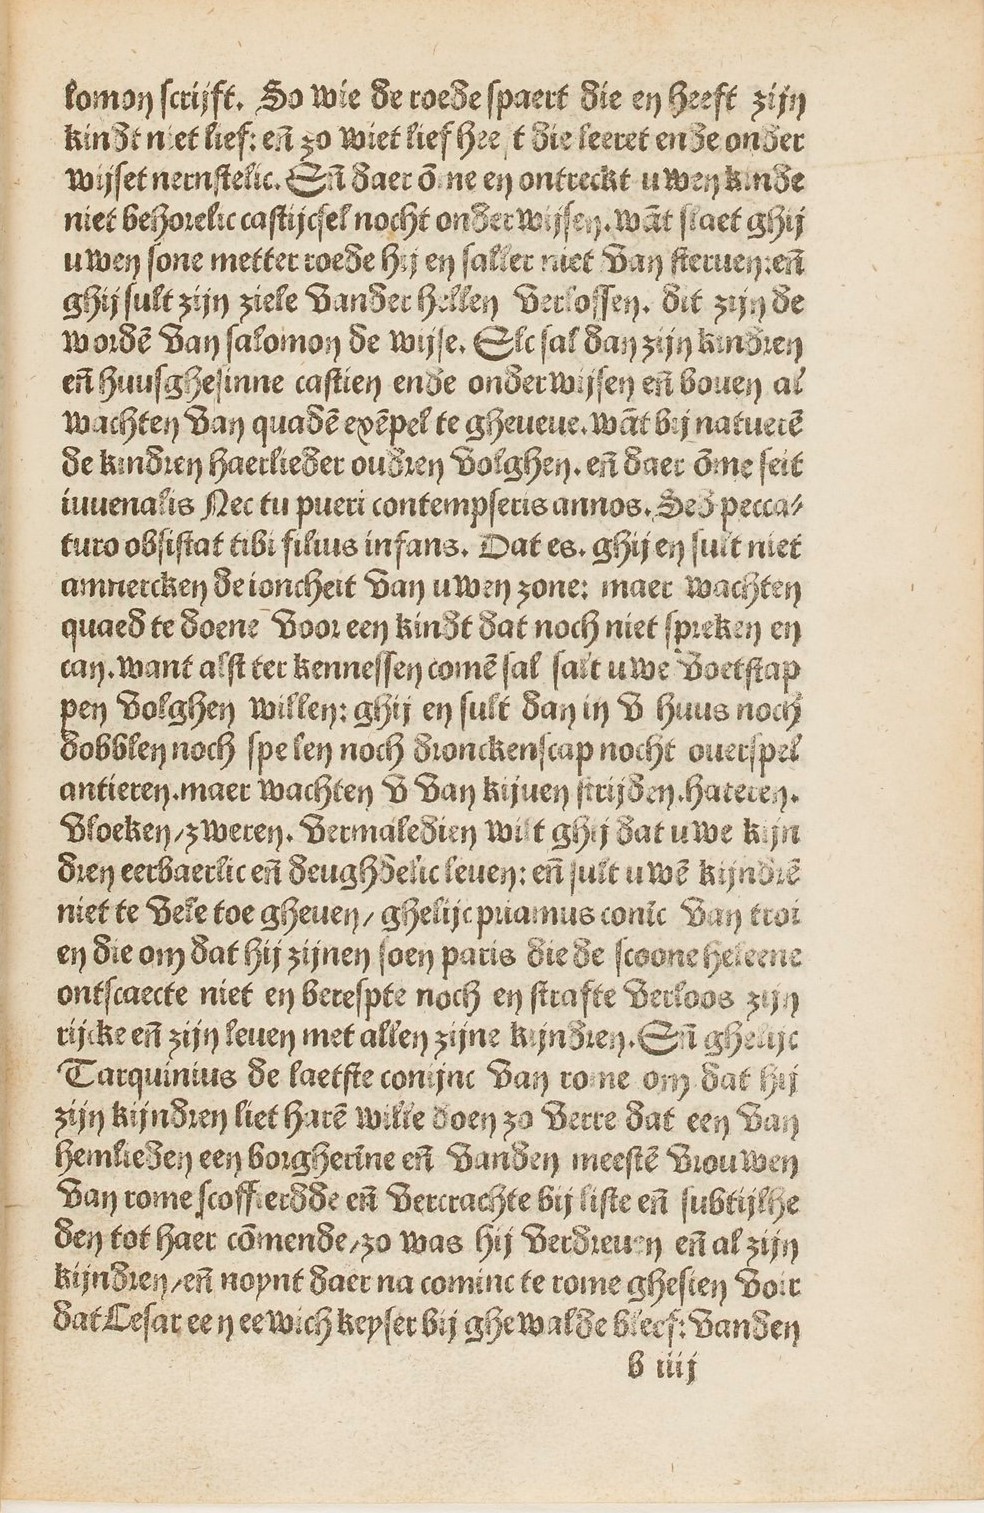 lomon scrijft. So wie de roede spaert die en heeft zijn
kindt niet lief: en̄ zo wiet lief heeft die leeret ende onder
wijset nernstelic. En̄ daer ōme en ontreckt uwen kinde
niet behorelic castijcsel nocht onderwijsen. wāt slaet ghij
uwen sone metter roede hij en saller niet van steruen: en̄
ghij sult zijn ziele vander hellen verlossen. dit zijn de
wordē van salomon de wijse. Elc sal dan zijn kindren
en̄ huusghesinne castien ende onderwijsen en̄ bouen al
wachten van quadē exēpel te gheueue. wāt bij natuerē
de kindren haerlieder oudren volghen. en̄ daer ōme seit
iuuenalis Nec tu pueri contempseris annos. Sed pecca⸗
turo obsistat tibi filius infans. Dat es. ghij en sult niet
anmercken de ioncheit van uwen zone: maer wachten
quaed te doene voor een kindt dat noch niet spreken en
can. want alst ter kennessen comē sal salt uwe voetstap
pen volghen willen: ghij en sult dan in v huus noch
dobblen noch spelen noch dronckenscap nocht ouerspel
antieren. maer wachten v van kijuen strijden. hateren.
vloeken/zweren. vermaledien wilt ghij dat uwe kijn
dren eerbaerlic en̄ deughdelic leuen: en̄ sult uwē kijndrē
niet te vele toe gheuen/ ghelijc priamus conīc van troi
en die om dat hij zijnen soen paris die de scoone heleene
ontscaecte niet en berespte noch en strafte verloos zijn
rijcke en̄ zijn leuen met allen zijne kijndren. En̄ ghelijc
Tarquinius de laetste conijnc van rome om dat hij
zijn kijndren liet harē wille doen zo verre dat een van
hemlieden een borgherīne en̄ vanden meestē vrouwen
van rome scoffierdde en̄ vercrachte bij liste en̄ subtijlhe
den tot haer cōmende/zo was hij verdreuen en̄ al zijn
kijndren/en̄ noynt daer na cominc te rome ghesien voir
dat Cesar een eewich keyser bij ghewalde bleef: vanden
b iiij